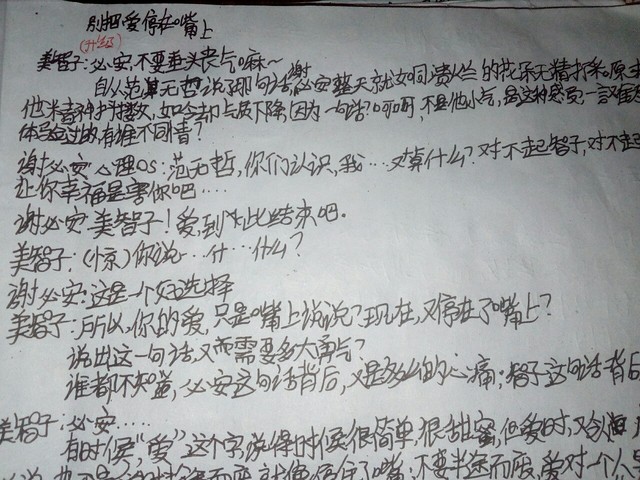 别把爱停在嘴上
(升级)
美智子:必安,不要垂头丧气嘛~
自从范无哲说了那句话,谢必安整天就如同溃烂的花朵无精打采。原本
他精神抖擞,如今却气质下降,因为一句话?呵呵,不是他小气,是这种感觉,一言难
体会过的有谁不同情?
谢必安心理OS:范无哲,你们认识,我…又算什么?对不起智子,对不起
让你幸福是害你吧…
谢必安:美智子!爱,到此结束吧。
美智子:(惊)你说…什…什么?
谢必安:这是一个好选择
美智子:所以,你的爱,只是嘴上说说?现在,又停在了嘴上?
说出这一句话,又需要多大勇气?
谁都不知道,必安这句话背后,又是多么的心痛;智子这句话背后
美智子:必安……
有时候,"爱"这个字,说得时候很简单,很甜蜜,但爱时,又会
嘴;不要半途而废,爱对一个人